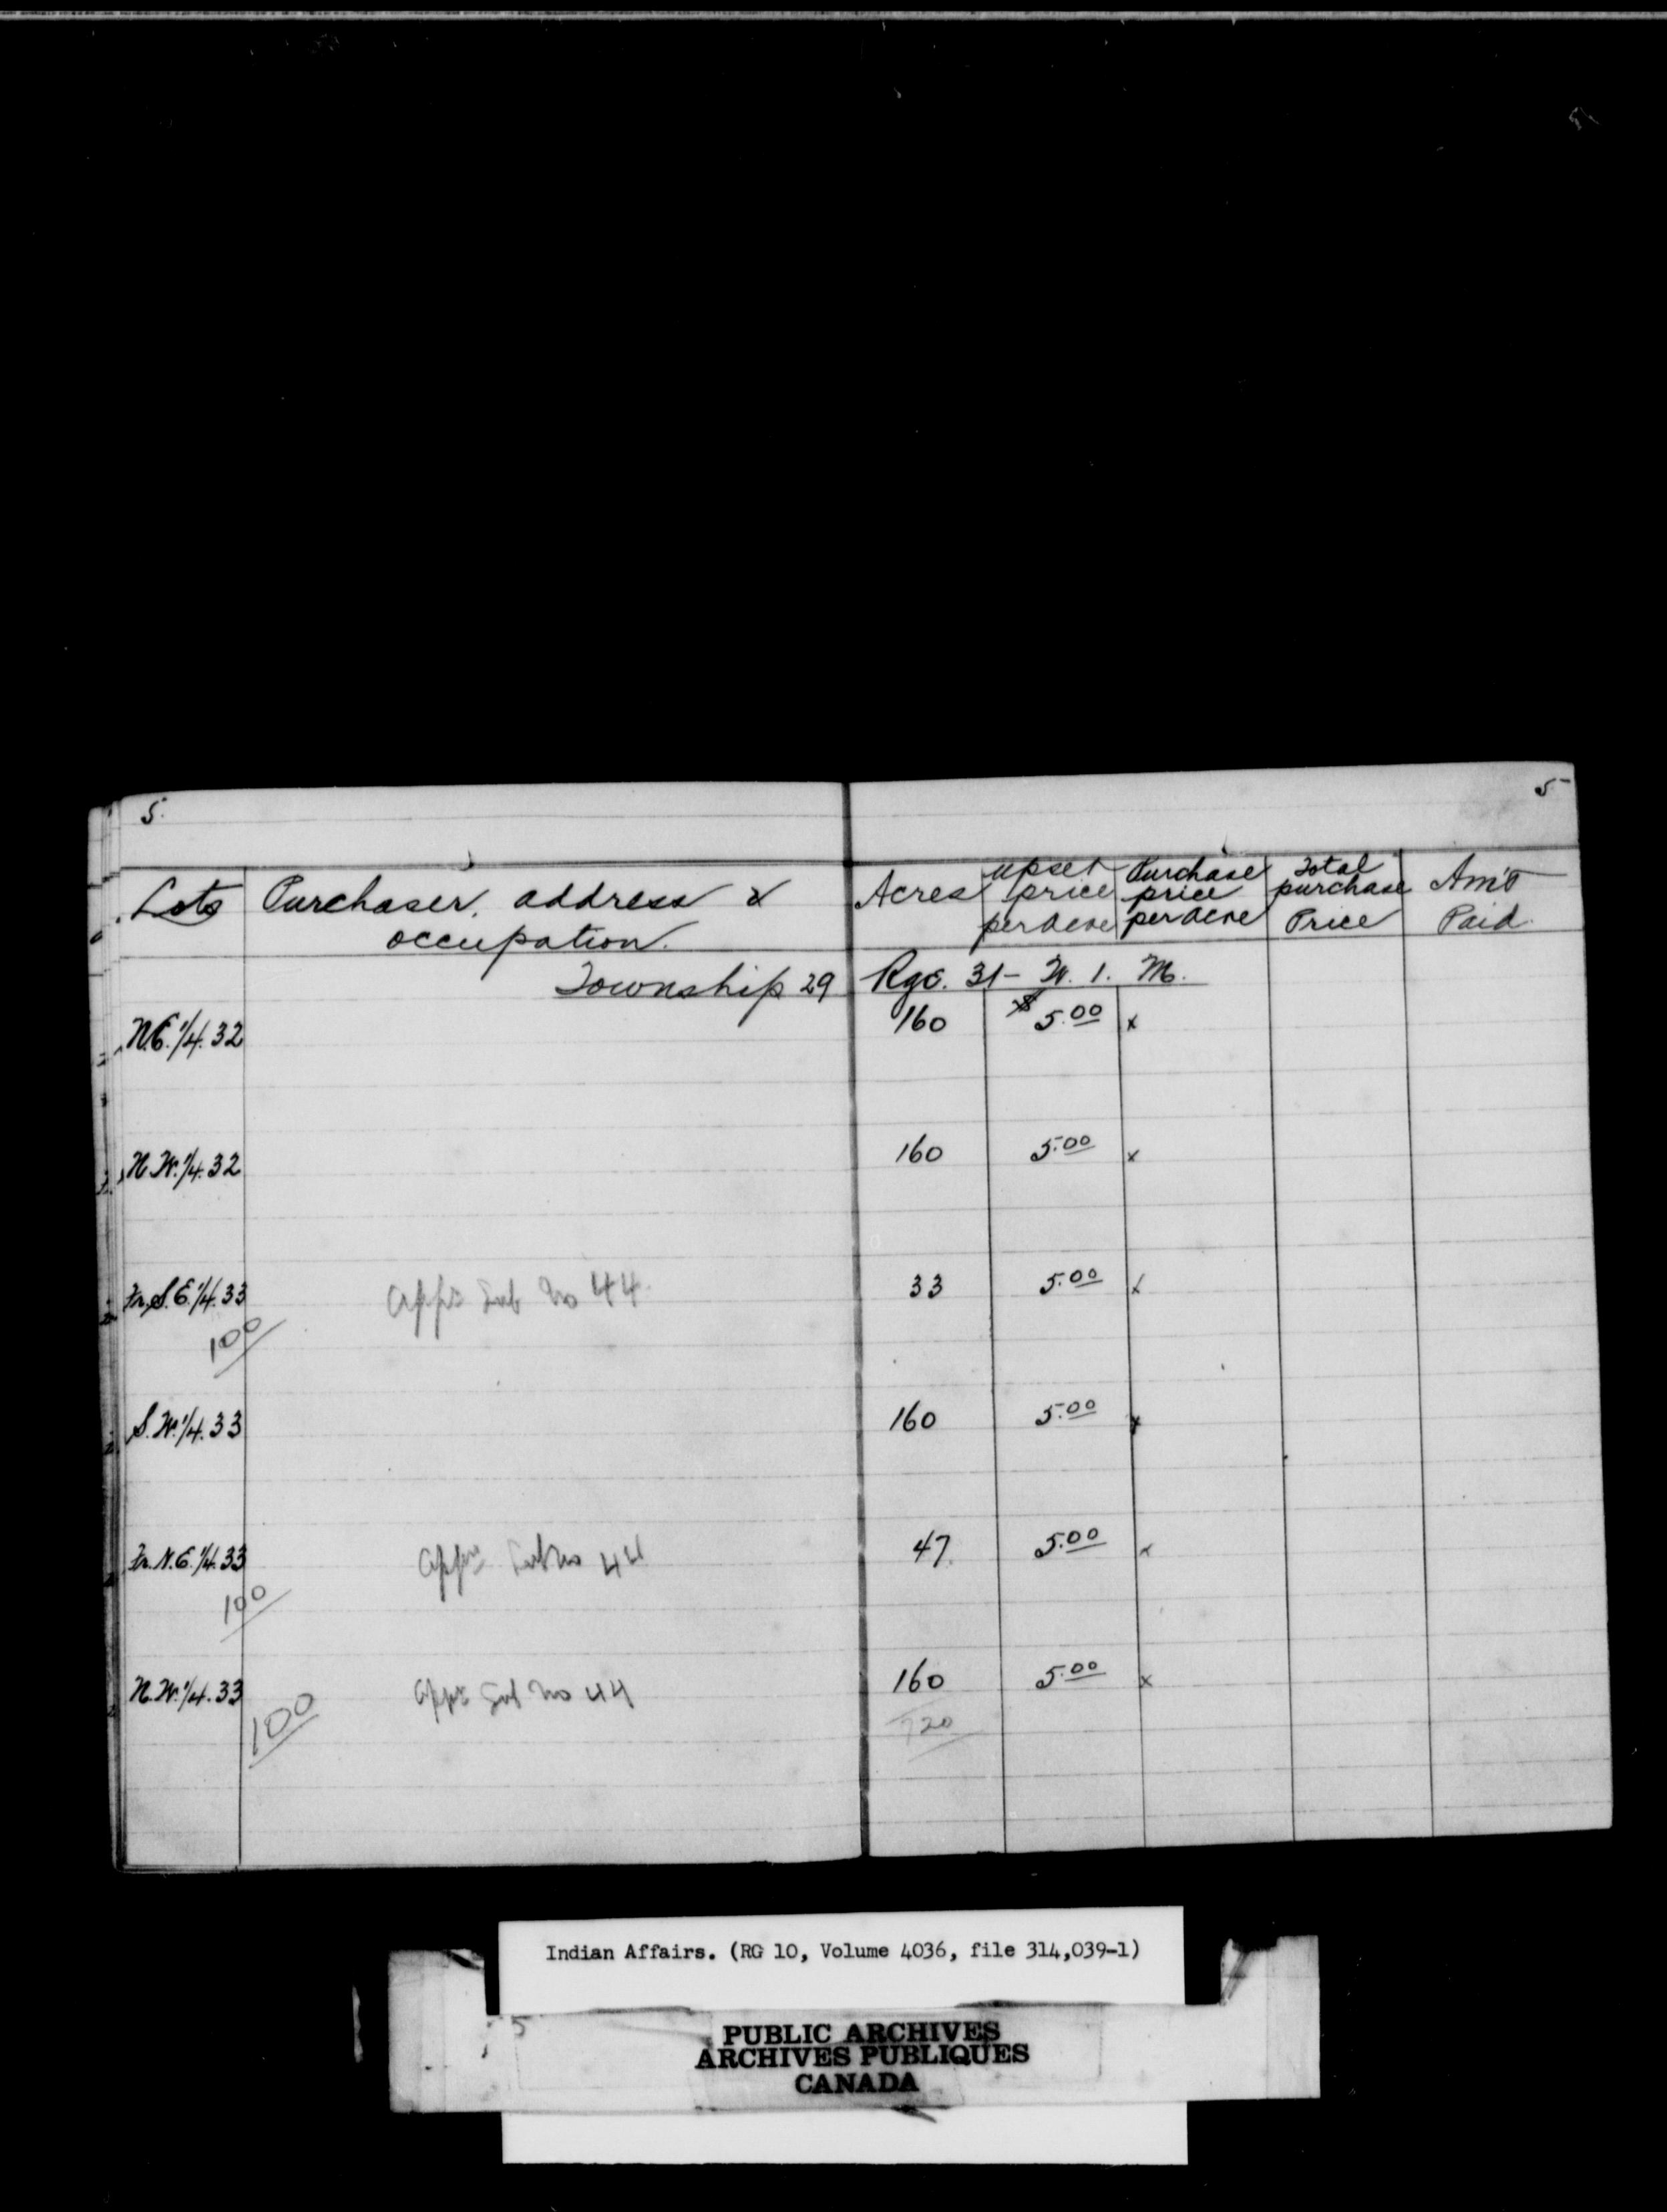 5.
5
Lots
Purchaser, address &
occupation.
Acres
upset
price
per acre
Purchase
price
per acre
Total
purchase
Price
Am't
Paid
Township 29 Rge. 31 - W. 1. M.
N.E. 1/4. 32 160 $5.00 x
N.W. 1/4. 32 160 5.00 x
Fr. S.E. 1/4. 33 No 44. 33 5.00 x
100
S.W. 1/4. 33 160 5.00 x
Fr. N.E. 1/4. 33 No 44 47. 5.00 x
100
N.W. 1/4. 33 No 44 160 5.00 x
100 720
Indian Affairs. (RG 10, Volume 4036, file 314,039-1)
5
PUBLIC ARCHIVES
ARCHIVES PUBLIQUES
CANADA